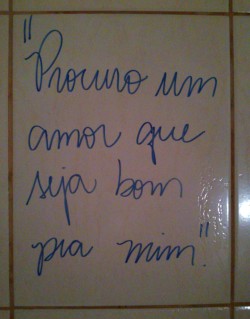 "Procuro um
amor que
seja bom
pra mim."